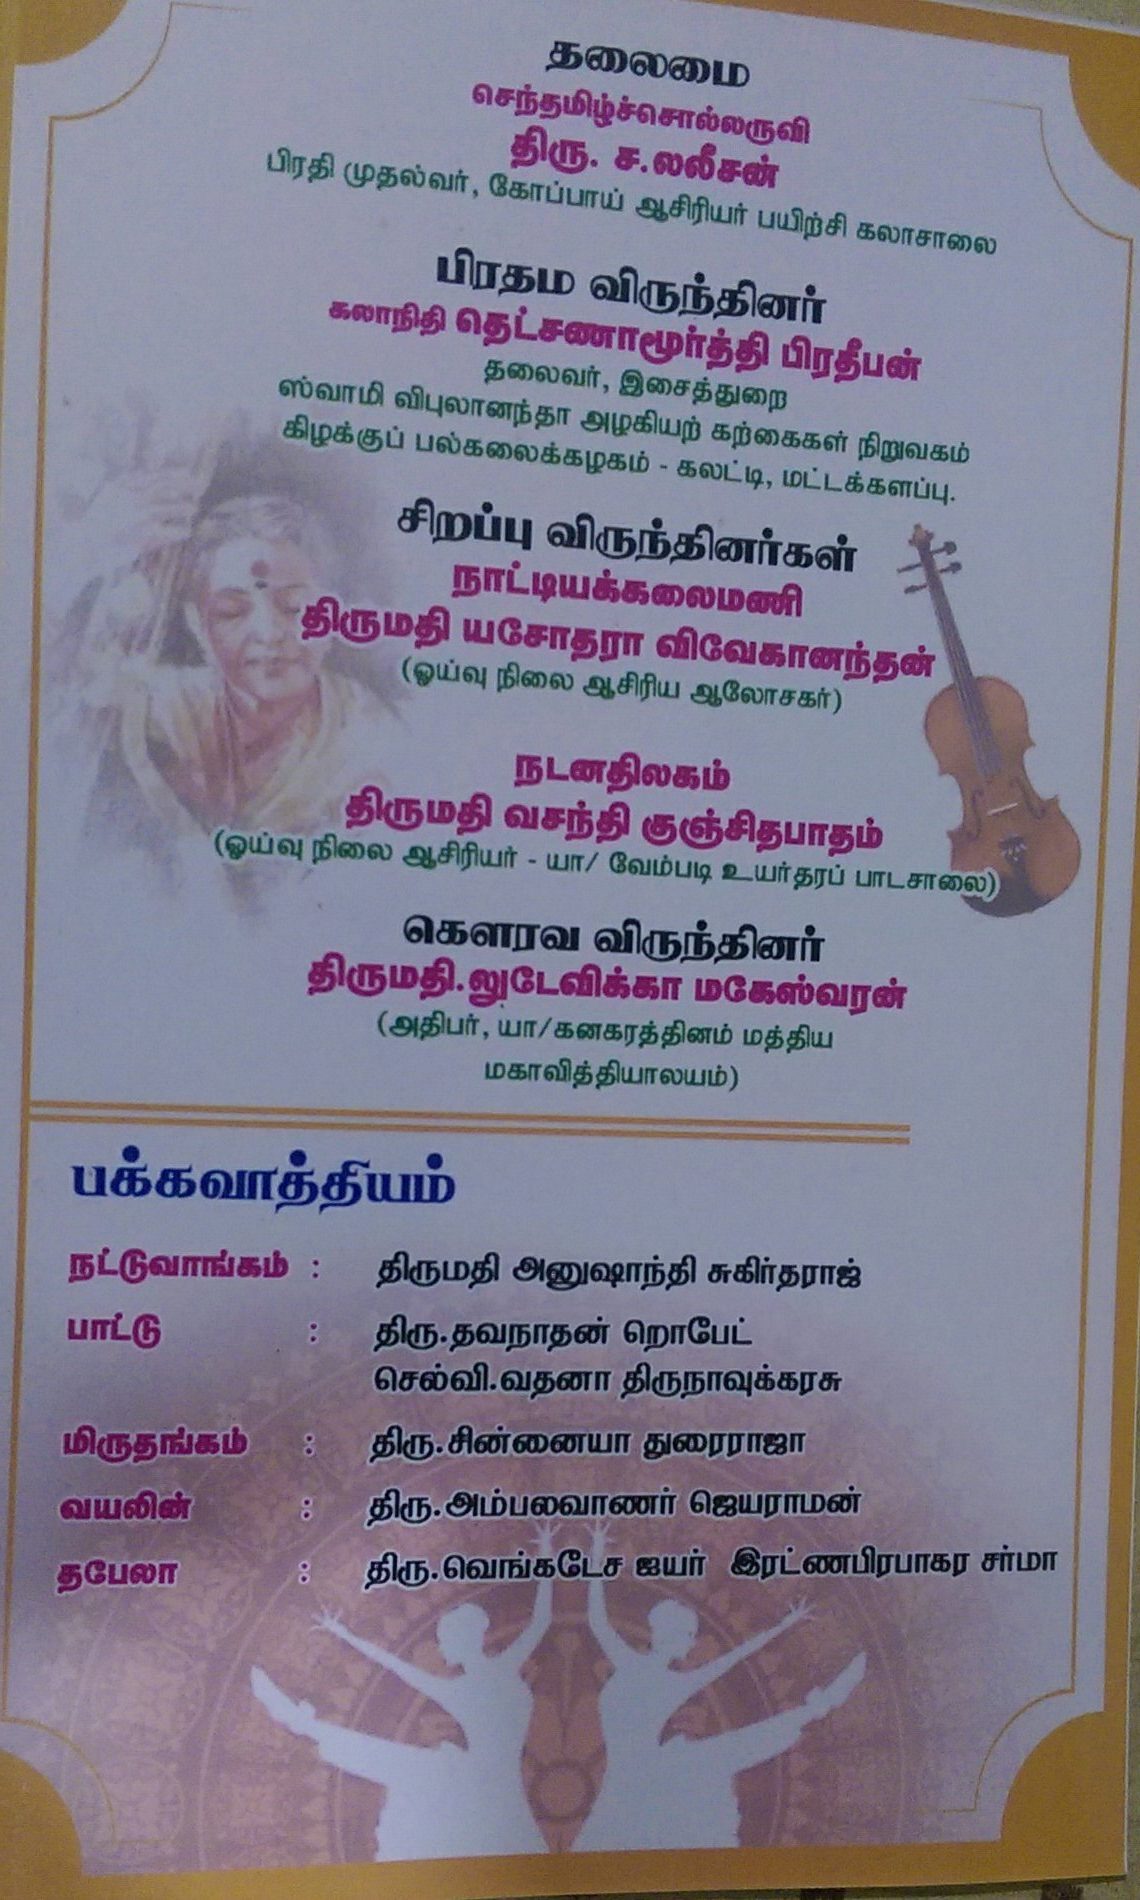 தலைமை
செந்தமிழ்ச்சொல்லருவி
திரு. ச.லலீசன்
பிரதி முதல்வர், கோப்பாய் ஆசிரியர் பயிற்சி கலாசாலை
பிரதம விருந்தினர்
கலாநிதி தெட்சணாமூர்த்தி பிரதீபன்
தலைவர், இசைத்துறை
ஸ்வாமி விபுலானந்தா அழகியற் கற்கைகள் நிறுவகம்
கிழக்குப் பல்கலைக்கழகம் - கலட்டி, மட்டக்களப்பு.
சிறப்பு விருந்தினர்கள்
நாட்டியக்கலைமணி
திருமதி யசோதரா விவேகானந்தன்
(ஓய்வு நிலை ஆசிரிய ஆலோசகர்)
நடனதிலகம்
திருமதி வசந்தி குஞ்சிதபாதம்
(ஓய்வு நிலை ஆசிரியர் - யா/ வேம்படி உயர்தரப் பாடசாலை)
கௌரவ விருந்தினர்
திருமதி.லுடேவிக்கா மகேஸ்வரன்
(அதிபர், யா/கனகரத்தினம் மத்திய
மகாவித்தியாலயம்)
பக்கவாத்தியம்
நட்டுவாங்கம் : திருமதி அனுஷாந்தி சுகிர்தராஜ்
பாட்டு : திரு.தவநாதன் றொபேட்
செல்வி.வதனா திருநாவுக்கரசு
மிருதங்கம் : திரு.சின்னையா துரைராஜா
வயலின் : திரு.அம்பலவாணர் ஜெயராமன்
தபேலா : திரு.வெங்கடேச ஐயர் இரட்ணபிரபாகர சர்மா